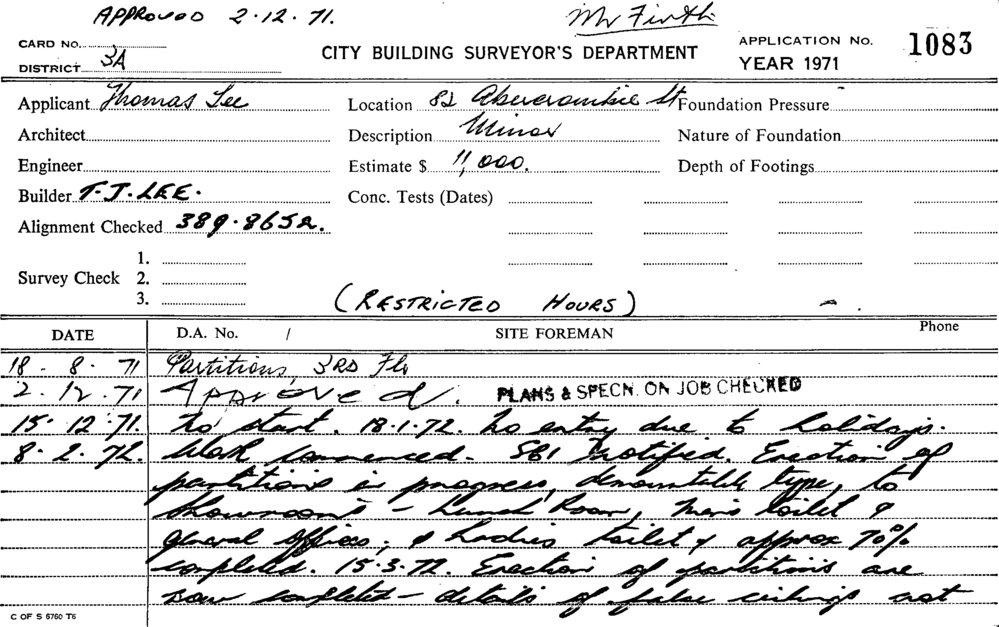 APPROVED 2.12.71. Mr Firth
CARD No. CITY BUILDING SURVEYOR'S DEPARTMENT APPLICATION No. 1083
DISTRICT 3A YEAR 1971
Applicant Thomas Lee Location 82 Abercrombie St Foundation Pressure
Architect Description Minor Nature of Foundation
Engineer Estimate $ 11,000. Depth of Footings
Builder T.J. LEE. Conc. Tests (Dates)
Alignment Checked 389.8652.
1.
Survey Check 2.
3. (RESTRICTED HOURS)
DATE D.A. No. / SITE FOREMAN Phone
18 . 8 . 71 Partitions, 3RD Flr
2 . 12 . 71 Approved. PLANS & SPECN. ON JOB CHECKED
15. 12. 71. No start. 18.1.72. No entry due to holidays.
8. 2. 72. Work commenced. SBI notified. Erection of
partitions in progress, demountable type, to
showrooms - Lunch Room, men's toilet &
general offices; & Ladies toilet & approx 70%
completed. 15.3.72. Erection of partitions are
now completed - details of false ceilings not
C OF S 6760 T6